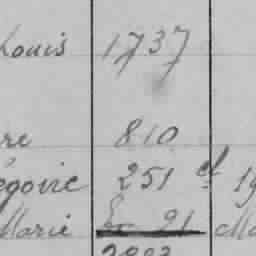 Louis 1737
re 810
égovic 251 et 19
Marie 21 Ma